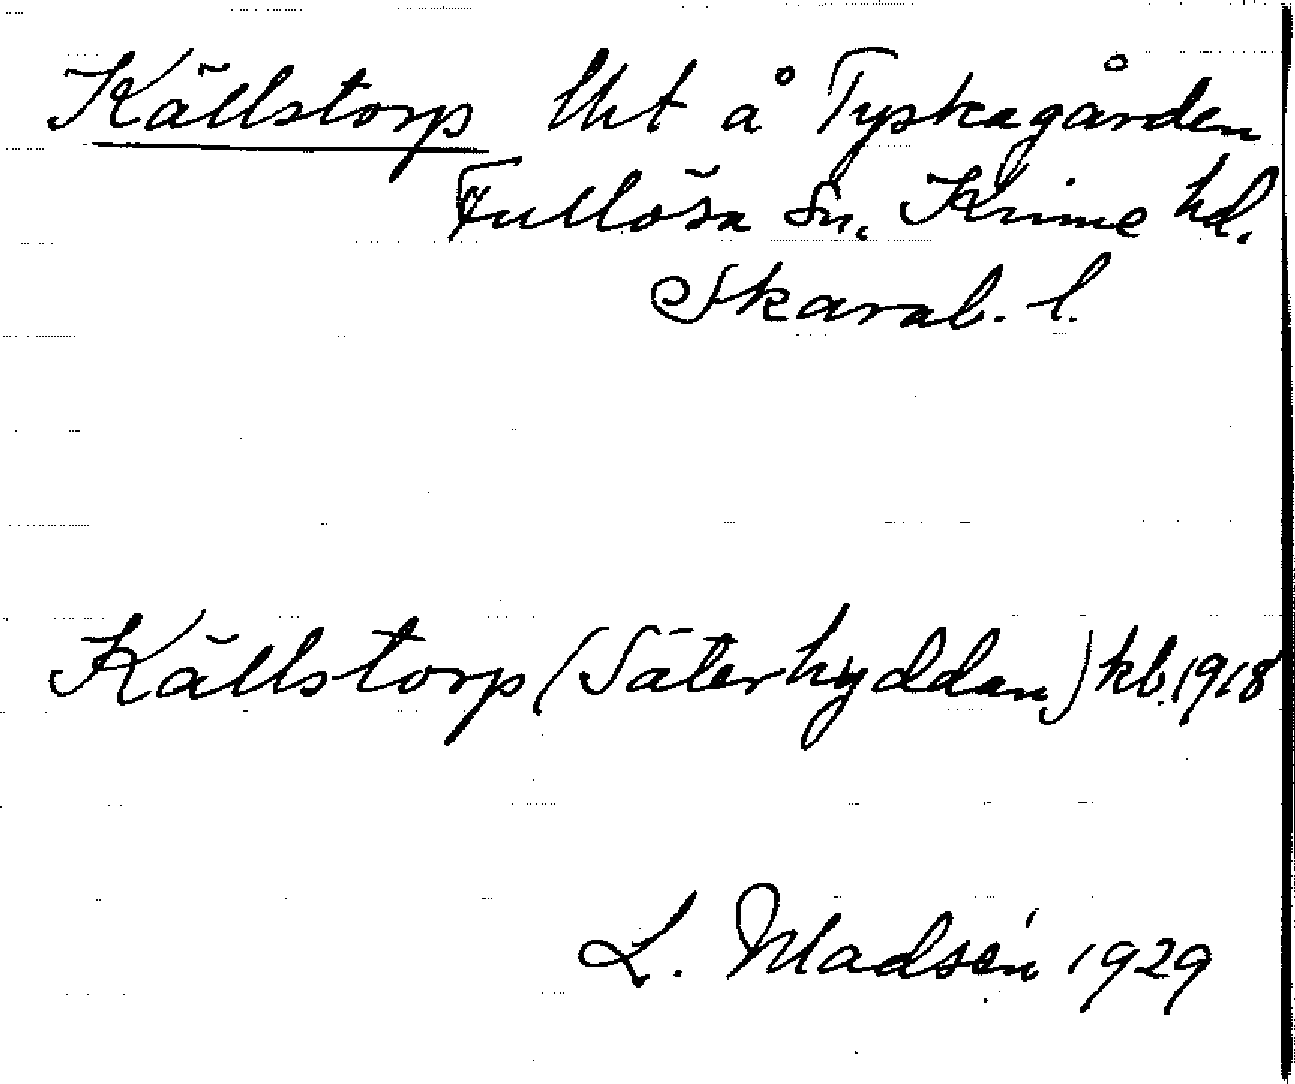 Källstorp lht å Tyskagården
Fullösa sn. Kinne hd.
Skarab. l.
Källstorp (Säterhyddan) kb. 1918
L. Madsén 1929